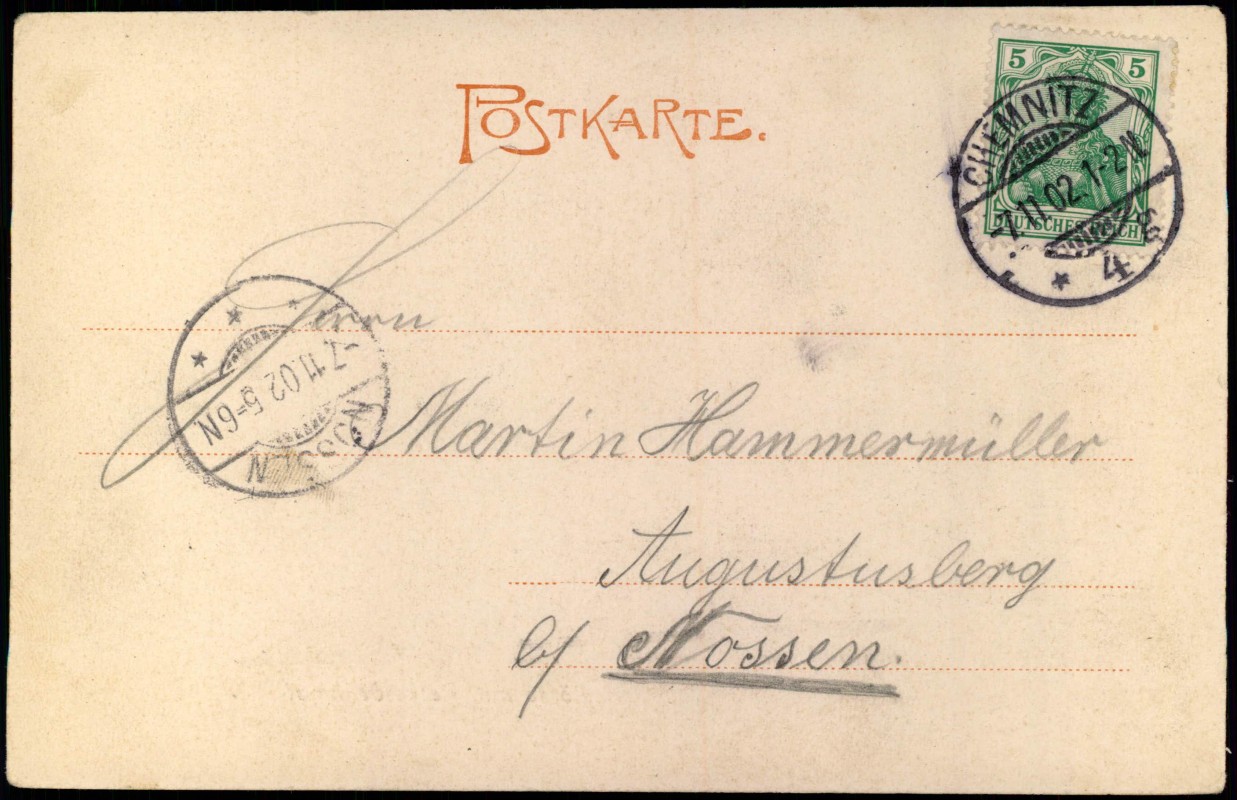 POSTKARTE.
5 5
DEUTSCHES REICH
CHEMNITZ
-7.11.02.1-2N.
* 4
Herrn
-7.11.02.5-6N
NOSSEN
Martin Hammermüller
Augustusberg
b/ Nossen.